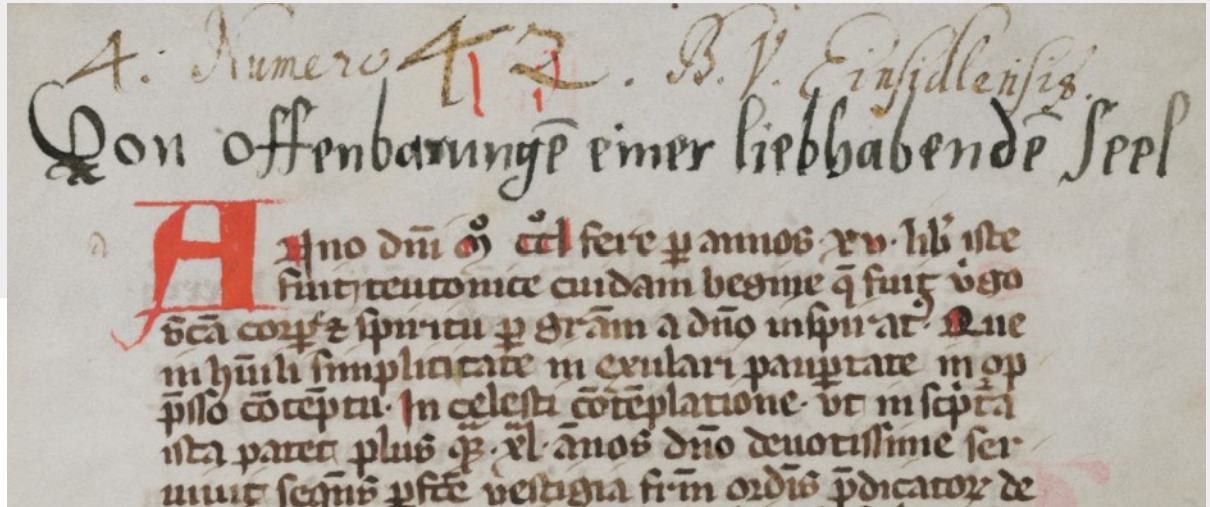 4. Numero 42. B. V. Einsidlensis.
Von offenbarungē einer liebhabendē Seel
Anno dn̄i mͦ ccͦl fere ꝑ annos xv. lib̾ iste
fuit teutonice cuidam begine q̄ fuit v̾go
sc̄a corꝑe ⁊ spiritu ꝑ gr̄am a dn̄o inspirat᾽. Que
in hūili simplicitate in exulari pauꝑtate in op
p̄sso ꝯtēptu. In celesti cōtēplatione. vt in sc̾pt̄a
ista patet plus qͣꝫ. xl. ānos dn̄o deuotissime ser
uiuit seqn̄s ꝑfc̄e vestigia fr̄m ordīs p̄dicatoꝝ de